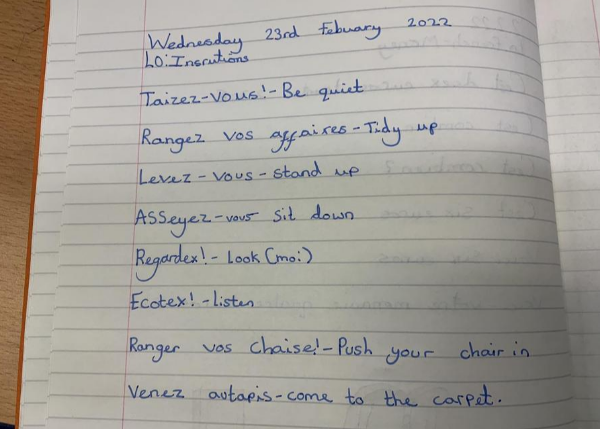 Wednesday 23rd Febuary 2022
LO: Insrutions
Taizez-vous! - Be quiet
Rangez vos affaires - Tidy up
Levez - vous - stand up
ASSeyez-vous sit down
Regardex! - Look (moi)
Ecotex! - listen
Ranger vos chaise! - Push your chair in
Venez autapis - come to the carpet.